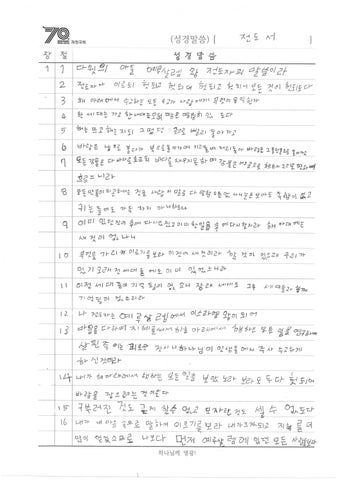 70
(성경말씀) | 전도서 |
성경말씀
장 절
1 1 다윗의 아들 예루살렘 왕 전도자의 말씀이라
2 전도자가 이르되 헛되고 헛되며 헛되고 헛되니 모든 것이 헛되도다
3 해 아래에서 수고하는 모든 수고가 사람에게 무엇이 유익한가
4 한 세대는 가고 한 세대는 오되 땅은 영원히 있도다
5 해는 뜨고 해는 지되 그 떴던 곳으로 빨리 돌아가고
6 바람은 남으로 불다가 북으로 돌아가며 이리 돌며 저리 돌아 바람은 그
7 모든 강물은 다 바다로 흐르되 바다를 채우지 못하며 강물은 어느 곳으로 흐르든지 그리로 연하여
흐르느니라
8 모든 만물이 피곤하다는 것을 사람이 말로 다 말할 수는 없나니 눈은 보아도 족함이 없고
귀는 들어도 가득 차지 아니하도다
9 이미 있던 것이 후에 다시 있겠고 이미 한 일을 후에 다시 할지라 해 아래에는
새 것이 없나니
10 무엇을 가리켜 이르기를 보라 이것이 새 것이라 할 것이 있으랴 우리가
있기 오래 전 세대들에도 이미 있었느니라
11 이전 세대들이 기억됨이 없으니 장래 세대도 그 후 세대들과 함께
기억됨이 없으리라
12 나 전도자는 예루살렘에서 이스라엘 왕이 되어
13 마음을 다하며 지혜를 써서 하늘 아래에서 행하는 모든 일을 연구하며
살핀즉 이는 괴로운 것이니 하나님이 인생들에게 주사 수고하게
하신 것이라
14 내가 해 아래에서 행하는 모든 일을 보았노라 보라 모두 다 헛되어
바람을 잡으려는 것이로다
15 구부러진 것도 곧게 할 수 없고 모자란 것도 셀 수 없도다
16 내가 내 마음 속으로 말하여 이르기를 보라 내가 크게 되고 지혜를 더
많이 얻었으므로 나보다 먼저 예루살렘에 있던 모든 사람들보다
하나님께 영광!